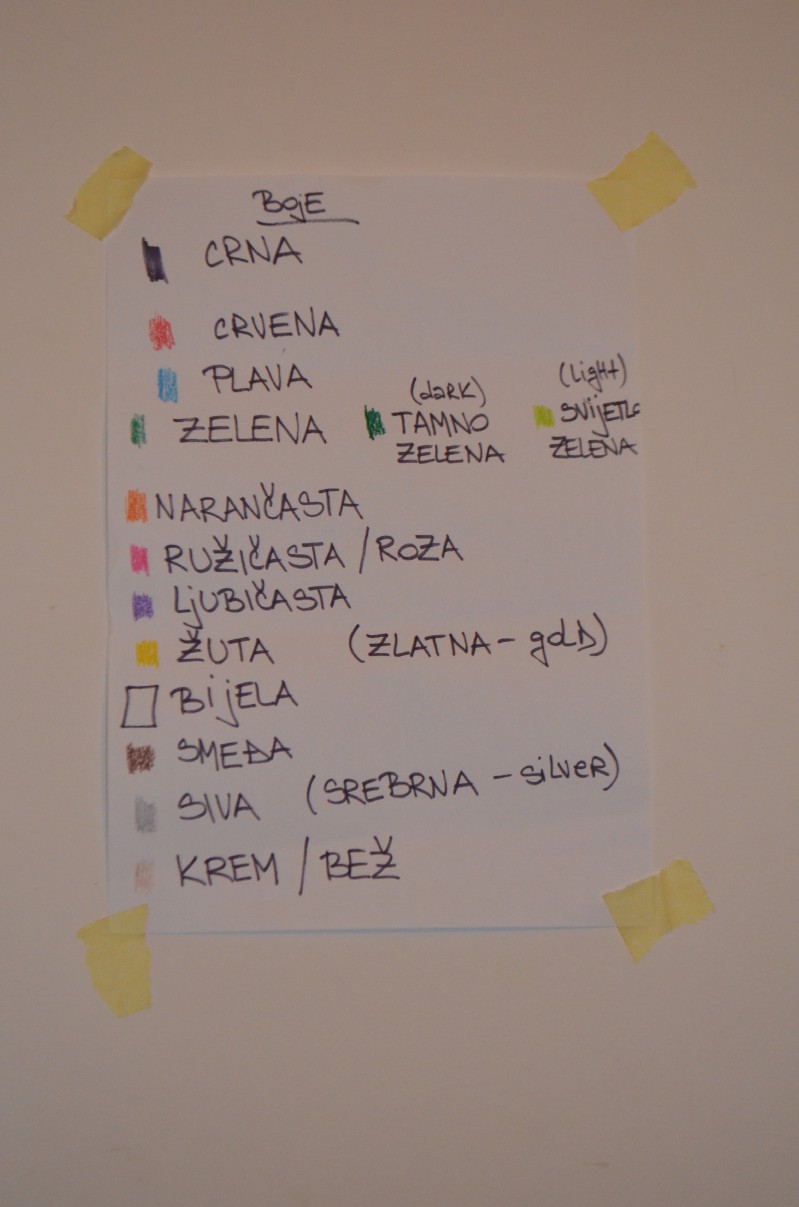 BOJE
CRNA
CRVENA
PLAVA
ZELENA (dark) TAMNO ZELENA (light) SVIJETLO ZELENA
NARANČASTA
RUŽIČASTA / ROZA
LJUBIČASTA
ŽUTA (ZLATNA - gold)
BIJELA
SMEĐA
SIVA (SREBRNA - silver)
KREM / BEŽ